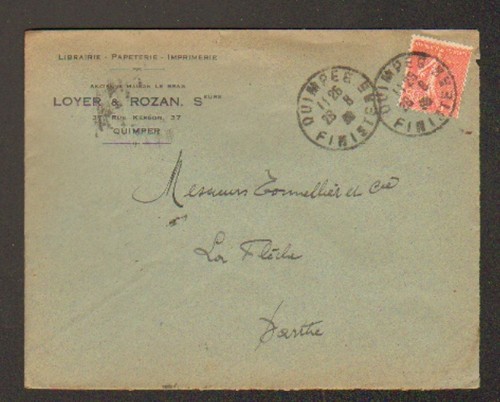 LIBRAIRIE - PAPETERIE - IMPRIMERIE
ANCIENNE MAISON LE BRAS
LOYER & ROZAN, SŒURS
Rue Kéréon, 37
QUIMPER
QUIMPER
FINISTÈRE
QUIMPER
FINISTÈRE
Messieurs Tonnellier et Cie
La Flèche
Sarthe